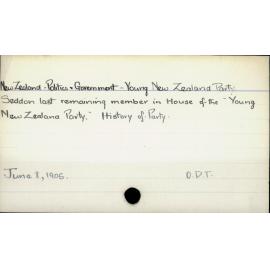 New Zealand - Politics & Government - Young New Zealand Party
Seddon last remaining member in House of the "Young
New Zealand Party." History of Party.
June 8, 1906. O.D.T.